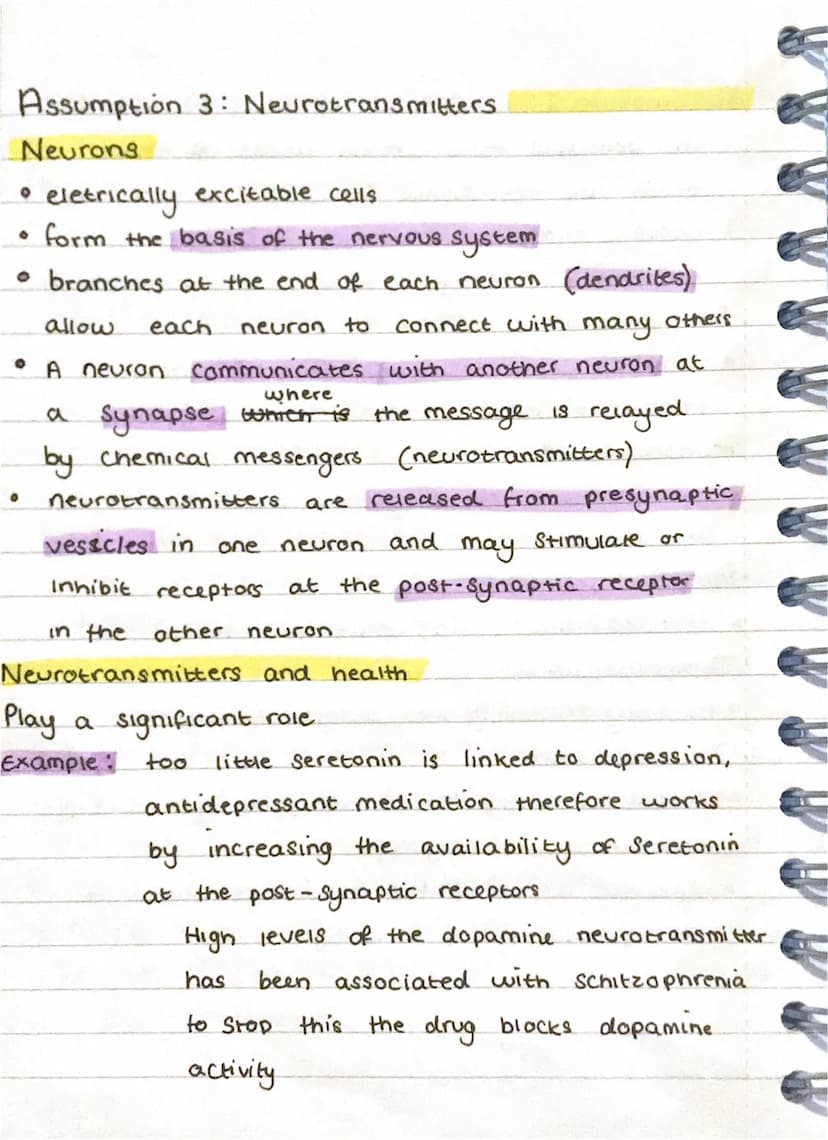 Assumption 3: Neurotransmitters
Neurons
• eletrically excitable cells
• form the basis of the nervous system
• branches at the end of each neuron (dendrites)
allow each neuron to connect with many others
• A neuron communicates with another neuron at
where
a synapse which is the message is relayed
by chemical messengers (neurotransmitters)
• neurotransmitters are released from presynaptic
vesicles in one neuron and may stimulate or
inhibit receptors at the post-synaptic receptor
in the other neuron
Neurotransmitters and health
Play a significant role
Example: too little seretonin is linked to depression,
antidepressant medication therefore works
by increasing the availability of seretonin
at the post-synaptic receptors
High levels of the dopamine neurotransmitter
has been associated with schitzophrenia
to stop this the drug blocks dopamine
activity